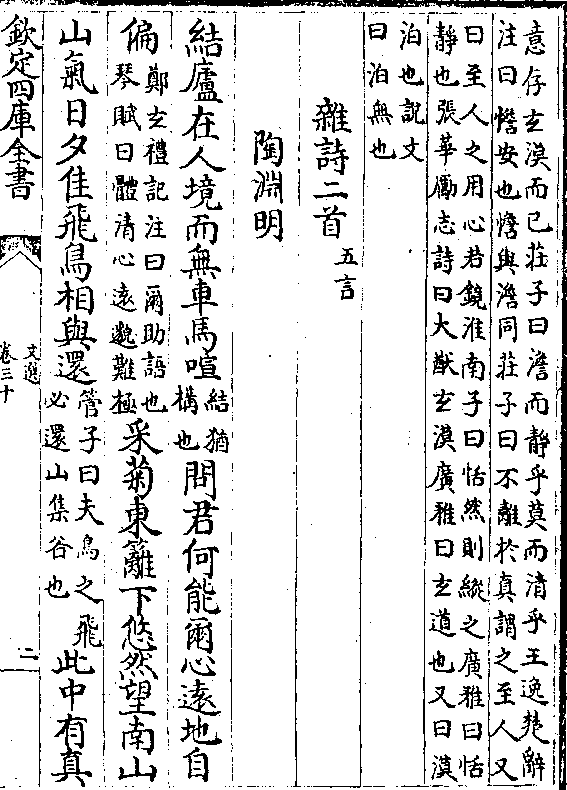 意存玄漠而已莊子曰澹而靜乎莫而清乎王逸楚辭
注曰憺安也憺與澹同莊子曰不離於真謂之至人又
曰至人之用心若鏡淮南子曰恬然則縱之廣雅曰恬
靜也張華勵志詩曰大猷玄漠廣雅曰玄道也又曰漠
泊也說文
曰泊無也
雜詩二首 五言
陶淵明
結廬在人境而無車馬喧結猶構也問君何能爾心遠地自
偏鄭玄禮記注曰爾助語也琴賦曰體清心遠邈難極采菊東籬下悠然望南山
山氣日夕佳飛鳥相與還管子曰夫鳥之飛必還山集谷也此中有真
欽定四庫全書
文選
卷三十
二